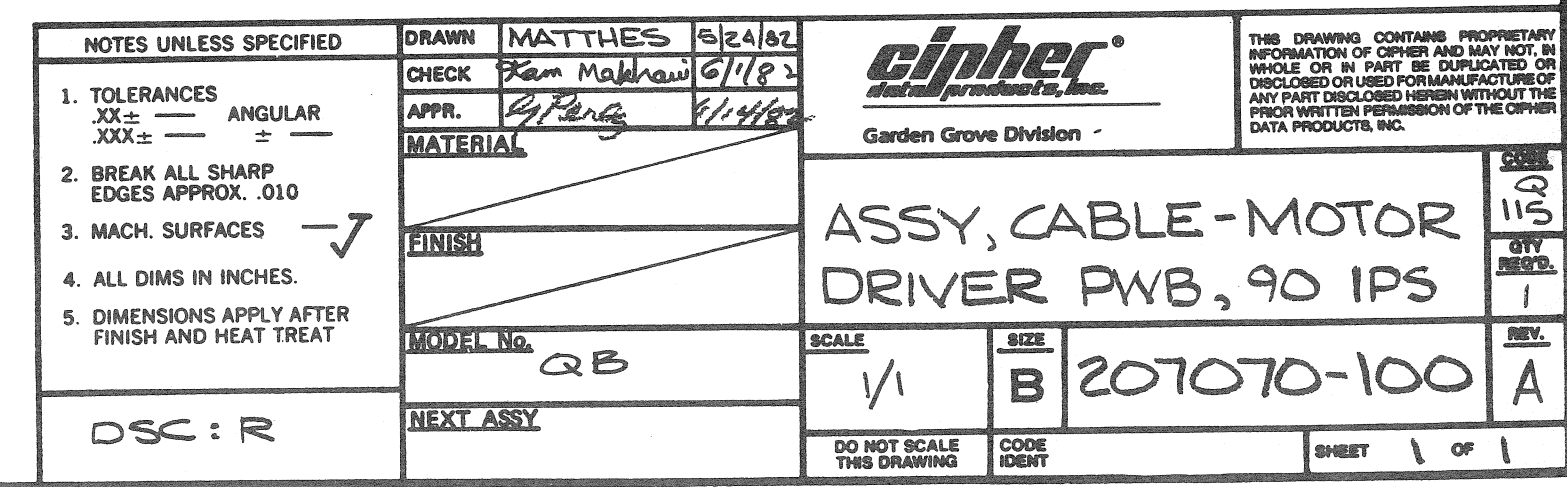 NOTES UNLESS SPECIFIED
1. TOLERANCES
.XX± — ANGULAR
.XXX± — ± —
2. BREAK ALL SHARP
EDGES APPROX. .010
3. MACH. SURFACES —√
4. ALL DIMS IN INCHES.
5. DIMENSIONS APPLY AFTER
FINISH AND HEAT TREAT
DSC: R
DRAWN MATTHES 5/24/82
CHECK Makhani 6/1/82
APPR.
MATERIAL
FINISH
MODEL No.
QB
NEXT ASSY
cipher®
data products, inc.
Garden Grove Division -
THIS DRAWING CONTAINS PROPRIETARY
INFORMATION OF CIPHER AND MAY NOT, IN
WHOLE OR IN PART BE DUPLICATED OR
DISCLOSED OR USED FOR MANUFACTURE OF
ANY PART DISCLOSED HEREIN WITHOUT THE
PRIOR WRITTEN PERMISSION OF THE CIPHER
DATA PRODUCTS, INC.
ASSY, CABLE-MOTOR
DRIVER PWB, 90 IPS
CODE
Q
115
QTY
REQ'D.
1
SCALE
1/1
SIZE
B
207070-100
REV.
A
DO NOT SCALE
THIS DRAWING
CODE
IDENT
SHEET 1 OF 1